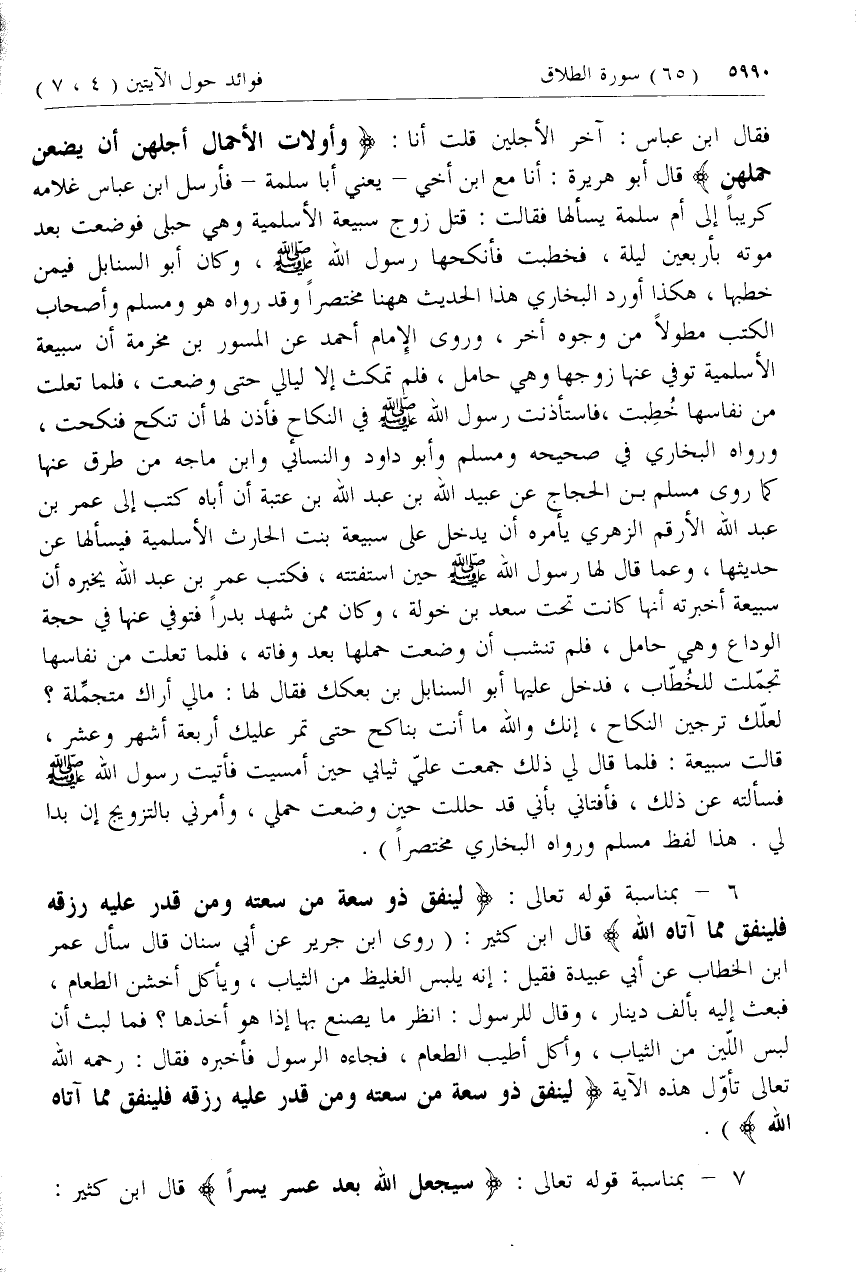 ٥٩٩٠ (٦٥) سورة الطلاق فوائد حول الآيتين (٤ ، ٧)
فقال ابن عباس : آخر الأجلين قلت أنا : ﴿ وأولات الأحمال أجلهن أن يضعن
حملهن ﴾ قال أبو هريرة : أنا مع ابن أخي – يعني أبا سلمة – فأرسل ابن عباس غلامه
كريباً إلى أم سلمة يسألها فقالت : قتل زوج سبيعة الأسلمية وهي حبلى فوضعت بعد
موته بأربعين ليلة ، فخطبت فأنكحها رسول الله ﷺ ، وكان أبو السنابل فيمن
خطبها ، هكذا أورد البخاري هذا الحديث ههنا مختصراً وقد رواه هو ومسلم وأصحاب
الكتب مطولاً من وجوه أخر ، وروى الإمام أحمد عن المسور بن مخرمة أن سبيعة
الأسلمية توفي عنها زوجها وهي حامل ، فلم تمكث إلا ليالي حتى وضعت ، فلما تعلت
من نفاسها خُطِبت ،فاستأذنت رسول الله ﷺ في النكاح فأذن لها أن تنكح فنكحت ،
ورواه البخاري في صحيحه ومسلم وأبو داود والنسائي وابن ماجه من طرق عنها
كما روى مسلم بن الحجاج عن عبيد الله بن عبد الله بن عتبة أن أباه كتب إلى عمر بن
عبد الله الأرقم الزهري يأمره أن يدخل على سبيعة بنت الحارث الأسلمية فيسألها عن
حديثها ، وعما قال لها رسول الله ﷺ حين استفتته ، فكتب عمر بن عبد الله يخبره أن
سبيعة أخبرته أنها كانت تحت سعد بن خولة ، وكان ممن شهد بدراً فتوفي عنها في حجة
الوداع وهي حامل ، فلم تنشب أن وضعت حملها بعد وفاته ، فلما تعلت من نفاسها
تجمّلت للخُطّاب ، فدخل عليها أبو السنابل بن بعكك فقال لها : مالي أراك متجمِّلة ؟
لعلّك ترجين النكاح ، إنك والله ما أنت بناكح حتى تمر عليك أربعة أشهر وعشر ،
قالت سبيعة : فلما قال لي ذلك جمعت عليّ ثيابي حين أمسيت فأتيت رسول الله ﷺ
فسألته عن ذلك ، فأفتاني بأني قد حللت حين وضعت حملي ، وأمرني بالتزويج إن بدا
لي . هذا لفظ مسلم ورواه البخاري مختصراً ) .
٦ – بمناسبة قوله تعالى : ﴿ لينفق ذو سعة من سعته ومن قدر عليه رزقه
فلينفق مما آتاه الله ﴾ قال ابن كثير : ( روى ابن جرير عن أبي سنان قال سأل عمر
ابن الخطاب عن أبي عبيدة فقيل : إنه يلبس الغليظ من الثياب ، ويأكل أخشن الطعام ،
فبعث إليه بألف دينار ، وقال للرسول : انظر ما يصنع بها إذا هو أخذها ؟ فما لبث أن
لبس اللّين من الثياب ، وأكل أطيب الطعام ، فجاءه الرسول فأخبره فقال : رحمه الله
تعالى تأوّل هذه الآية ﴿ لينفق ذو سعة من سعته ومن قدر عليه رزقه فلينفق مما آتاه
الله ﴾ ) .
٧ – بمناسبة قوله تعالى : ﴿ سيجعل الله بعد عسر يسراً ﴾ قال ابن كثير :